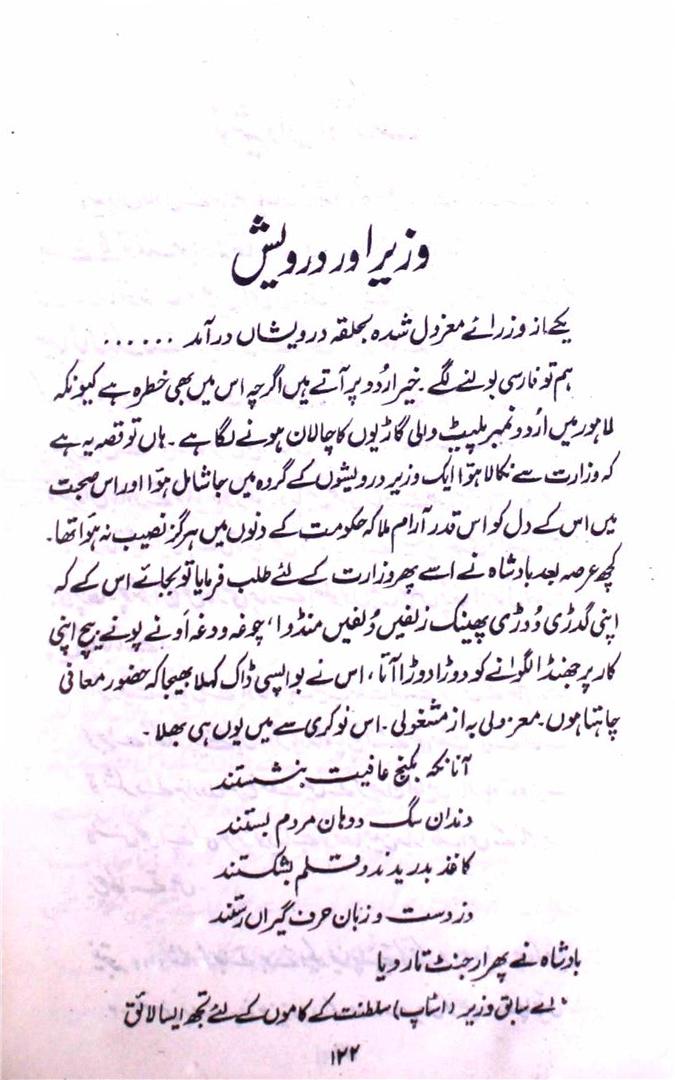 وزیر اور درویش
یکے از وزرائے معزول شدہ بحلقہ درویشاں درآمد ......
ہم تو فارسی بولنے لگے۔ خیر اُردو پر آتے ہیں اگرچہ اس میں بھی خطرہ ہے کیونکہ
لاہور میں اُردو نمبر پلیٹ والی گاڑیوں کا چالان ہونے لگا ہے۔ ہاں تو قصہ یہ ہے
کہ وزارت سے نکالا ہوَا ایک وزیر درویشوں کے گروہ میں جا شامل ہوَا اور اس صحبت
میں اس کے دل کو اس قدر آرام ملا کہ حکومت کے دنوں میں ہرگز نصیب نہ ہوَا تھا۔
کچھ عرصہ بعد بادشاہ نے اسے پھر وزارت کے لئے طلب فرمایا تو بجائے اس کے کہ
اپنی گدڑی وُدڑی پھینک زلفیں وُلفیں منڈوا، چوغہ ودغہ اَونے پونے بیچ اپنی
کار پر جھنڈا لگوانے کو دوڑا دوڑا آتا، اس نے بواپسی ڈاک کہلا بھیجا کہ حضور معافی
چاہتا ہوں۔ معزولی بہ از مشغولی۔ اس نوکری سے میں یوں ہی بھلا۔
آنانکہ بکنج عافیت بنشستند
دندان سگ و دہان مردم بستند
کاغذ بدریدند و قلم بشکستند
وز دست و زبان حرف گیراں رستند
بادشاہ نے پھر ارجنٹ تار دیا
"اے سابق وزیر (اسٹاپ) سلطنت کے کاموں کے لئے تجھ ایسا لائق
۱۲۲